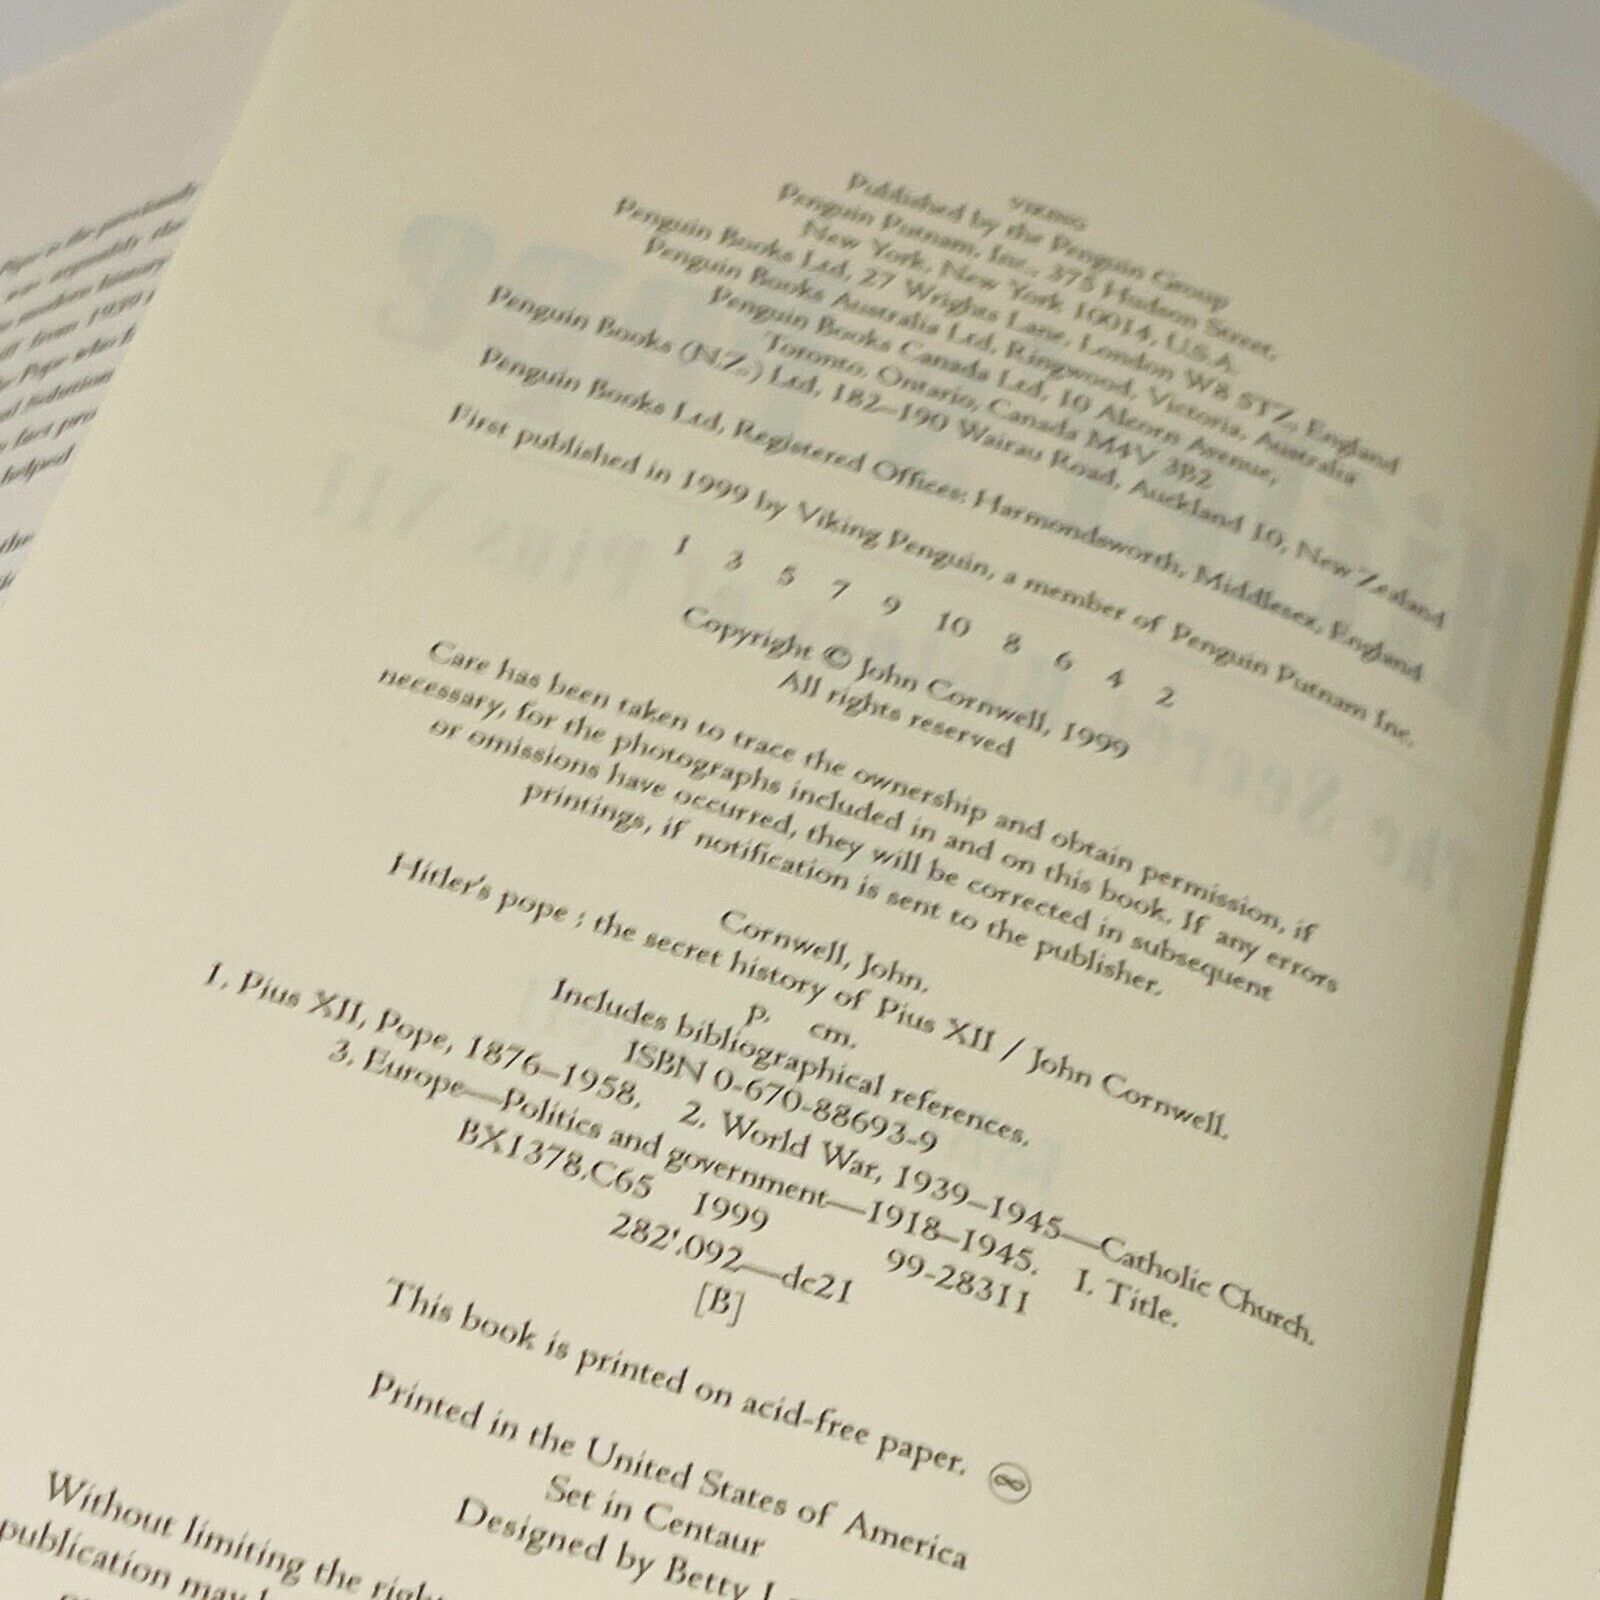 Pope is the previously
was arguably the
modern history
from 1930
Pope who
Solution
fact pro
helped
the
VIKING
Published by the Penguin Group
Penguin Putnam, Inc., 375 Hudson Street,
New York, New York 10014, U.S.A.
Penguin Books Ltd, 27 Wrights Lane, London W8 5TZ, England
Penguin Books Australia Ltd, Ringwood, Victoria, Australia
Penguin Books Canada Ltd, 10 Alcorn Avenue,
Toronto, Ontario, Canada M4V 3B2
Penguin Books (N.Z.) Ltd, 182–190 Wairau Road, Auckland 10, New Zealand
Penguin Books Ltd, Registered Offices: Harmondsworth, Middlesex, England
First published in 1999 by Viking Penguin, a member of Penguin Putnam Inc.
1 3 5 7 9 10 8 6 4 2
Copyright © John Cornwell, 1999
All rights reserved
Care has been taken to trace the ownership and obtain permission, if
necessary, for the photographs included in and on this book. If any errors
or omissions have occurred, they will be corrected in subsequent
printings, if notification is sent to the publisher.
Cornwell, John.
Hitler's pope : the secret history of Pius XII / John Cornwell.
p. cm.
Includes bibliographical references.
ISBN 0-670-88693-9
1. Pius XII, Pope, 1876–1958. 2. World War, 1939–1945—Catholic Church.
3. Europe—Politics and government—1918–1945. I. Title.
BX1378.C65 1999 99-28311
282'.092—dc21
[B]
This book is printed on acid-free paper. ∞
Printed in the United States of America
Set in Centaur
Designed by Betty
Without limiting the
publication may